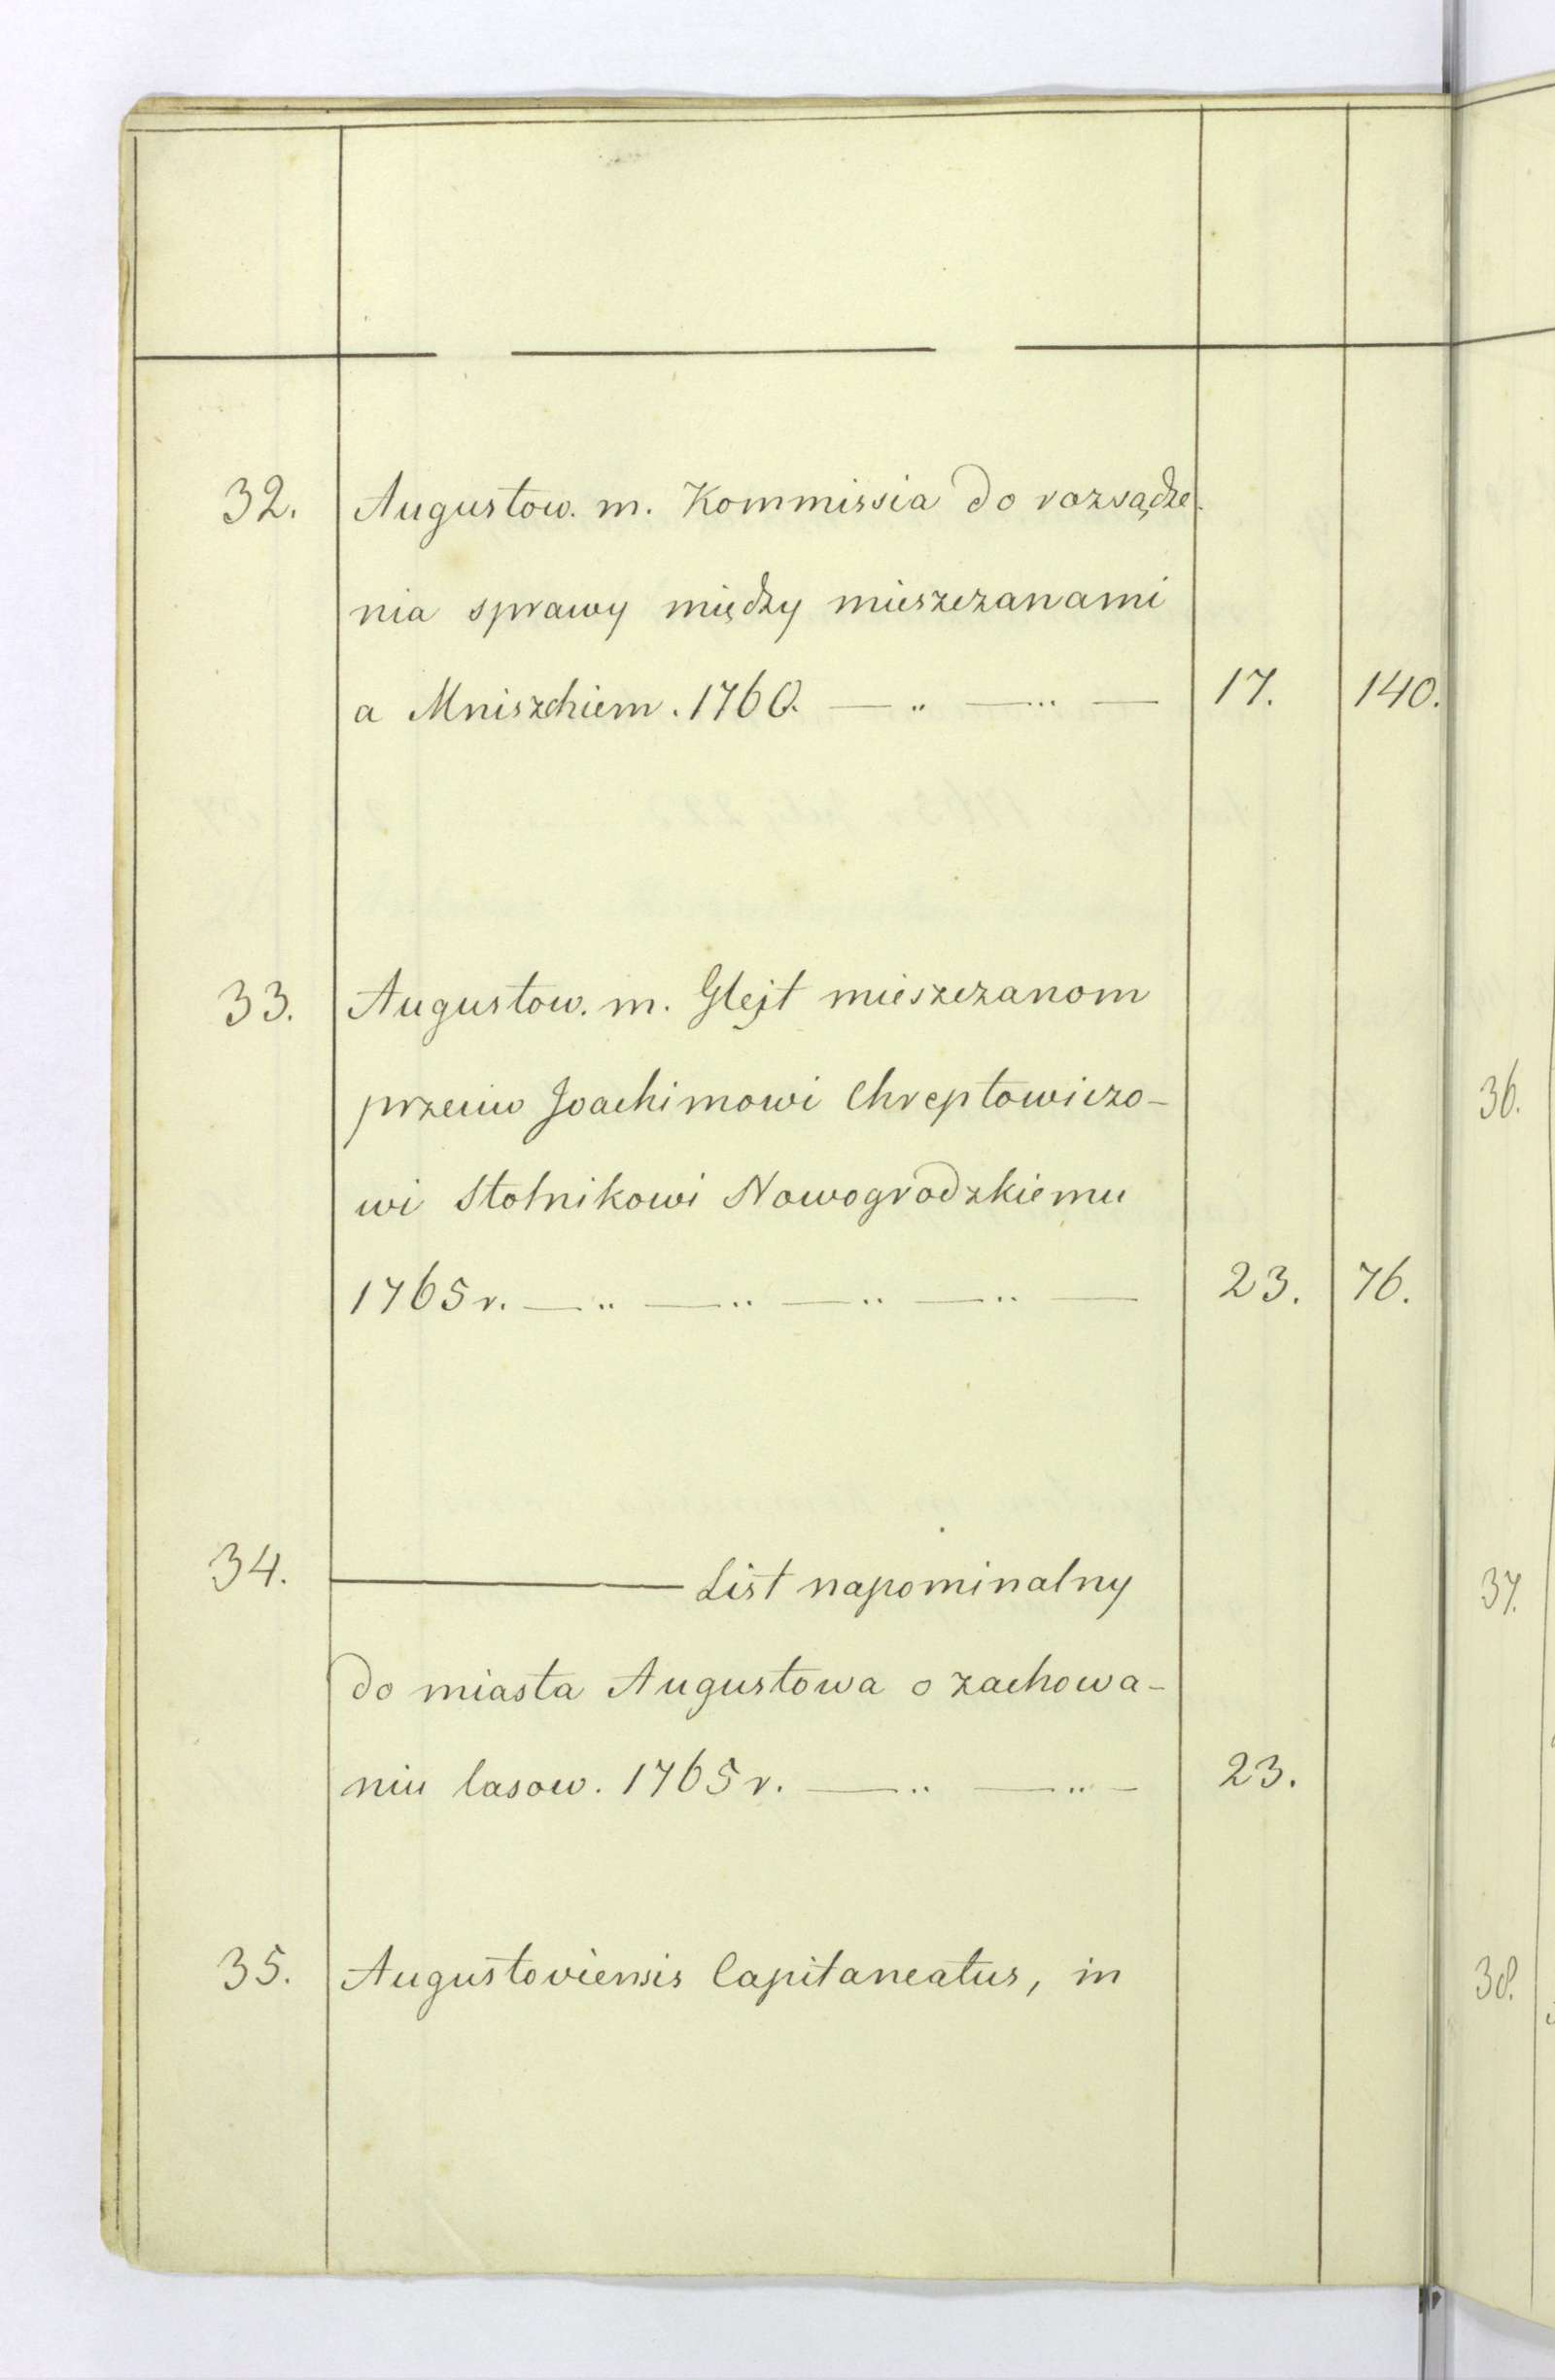 32. Augustow. m. Kommissia do rozsądze-
nia sprawy między mieszczanami
a Mniszchiem. 1760. — „ — ... — 17. 140.
33. Augustow. m. Glejt mieszczanom
przeciw Joachimowi Chreptowiczo-
wi Stolnikowi Nowogrodzkiemu
1765 r. — .. — .. — .. — .. — 23. 76.
34. ——— List napominalny
do miasta Augustowa o zachowa-
niu lasow. 1765 r. — .. — .. — 23.
35. Augustoviensis Capitaneatus, in
36.
37.
38.